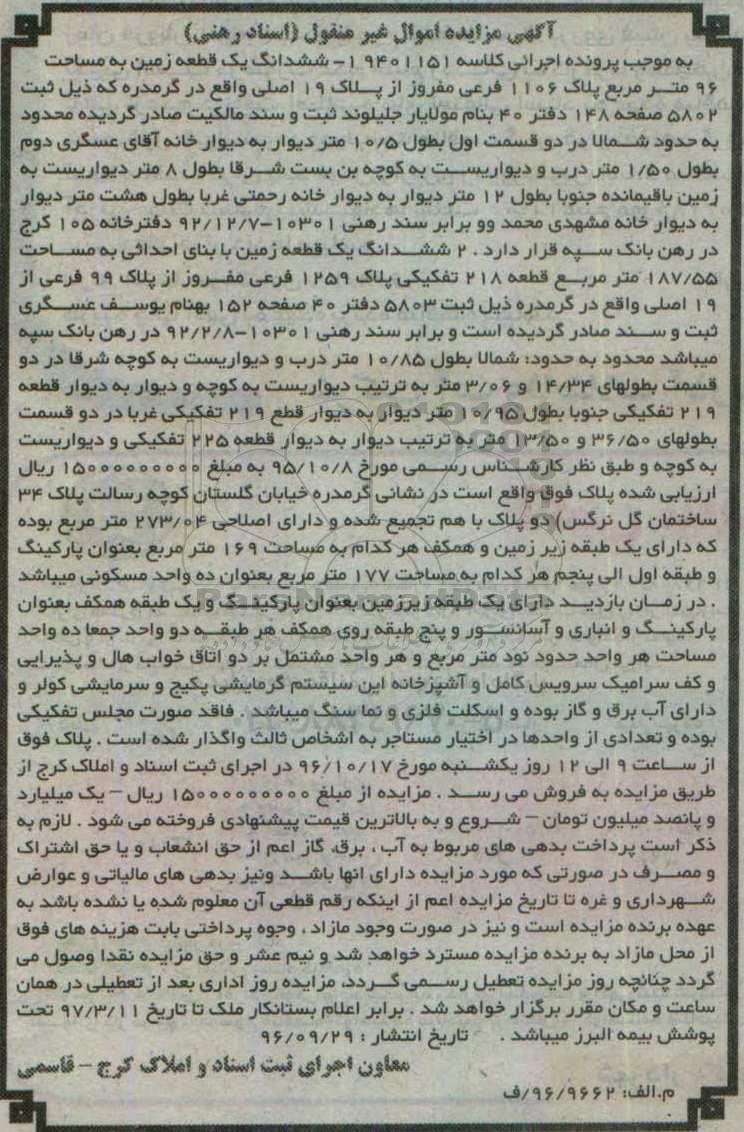 آگهی مزایده اموال غیر منقول (اسناد رهنی)
به موجب پرونده اجرائی کلاسه ۹۴۰۱۱۵۱ ۱- ششدانگ یک قطعه زمین به مساحت
۹۶ متر مربع پلاک ۱۱۰۶ فرعی مفروز از پلاک ۱۹ اصلی واقع در گرمدره که ذیل ثبت
۵۸۰۲ صفحه ۱۴۸ دفتر ۴۰ بنام مولایار جلیلوند ثبت و سند مالکیت صادر گردیده محدود
به حدود شمالا در دو قسمت اول بطول ۱۰/۵ متر دیوار به دیوار خانه آقای عسگری دوم
بطول ۱/۵۰ متر درب و دیواریست به کوچه بن بست شرقا بطول ۸ متر دیواریست به
زمین باقیمانده جنوبا بطول ۱۲ متر دیوار به دیوار خانه رحمتی غربا بطول هشت متر دیوار
به دیوار خانه مشهدی محمد وو برابر سند رهنی ۱۰۳۰۱-۹۲/۱۲/۷ دفترخانه ۱۰۵ کرج
در رهن بانک سپه قرار دارد . ۲ ششدانگ یک قطعه زمین با بنای احداثی به مساحت
۱۸۷/۵۵ متر مربع قطعه ۲۱۸ تفکیکی پلاک ۱۲۵۹ فرعی مفروز از پلاک ۹۹ فرعی از
۱۹ اصلی واقع در گرمدره ذیل ثبت ۵۸۰۳ دفتر ۴۰ صفحه ۱۵۲ بهنام یوسف عسگری
ثبت و سند صادر گردیده است و برابر سند رهنی ۱۰۳۰۱-۹۲/۲/۸ در رهن بانک سپه
میباشد محدود به حدود: شمالا بطول ۱۰/۸۵ متر درب و دیواریست به کوچه شرقا در دو
قسمت بطولهای ۱۴/۳۴ و ۳/۰۶ متر به ترتیب دیواریست به کوچه و دیوار به دیوار قطعه
۲۱۹ تفکیکی جنوبا بطول ۱۰/۹۵ متر دیوار به دیوار قطع ۲۱۹ تفکیکی غربا در دو قسمت
بطولهای ۳۶/۵۰ و ۱۳/۵۰ متر به ترتیب دیوار به دیوار قطعه ۲۲۵ تفکیکی و دیواریست
به کوچه و طبق نظر کارشناس رسمی مورخ ۹۵/۱۰/۸ به مبلغ ۱۵۰۰۰۰۰۰۰۰۰ ریال
ارزیابی شده پلاک فوق واقع است در نشانی گرمدره خیابان گلستان کوچه رسالت پلاک ۳۴
ساختمان گل نرگس) دو پلاک با هم تجمیع شده و دارای اصلاحی ۲۷۳/۰۴ متر مربع بوده
که دارای یک طبقه زیر زمین و همکف هر کدام به مساحت ۱۶۹ متر مربع بعنوان پارکینگ
و طبقه اول الی پنجم هر کدام به مساحت ۱۷۷ متر مربع بعنوان ده واحد مسکونی میباشد
. در زمان بازدید دارای یک طبقه زیرزمین بعنوان پارکینگ و یک طبقه همکف بعنوان
پارکینگ و انباری و آسانسور و پنج طبقه روی همکف هر طبقه دو واحد جمعا ده واحد
مساحت هر واحد حدود نود متر مربع و هر واحد مشتمل بر دو اتاق خواب هال و پذیرایی
و کف سرامیک سرویس کامل و آشپزخانه این سیستم گرمایشی پکیج و سرمایشی کولر و
دارای آب برق و گاز بوده و اسکلت فلزی و نما سنگ میباشد . فاقد صورت مجلس تفکیکی
بوده و تعدادی از واحدها در اختیار مستاجر به اشخاص ثالث واگذار شده است . پلاک فوق
از ساعت ۹ الی ۱۲ روز یکشنبه مورخ ۹۶/۱۰/۱۷ در اجرای ثبت اسناد و املاک کرج از
طریق مزایده به فروش می رسد . مزایده از مبلغ ۱۵۰۰۰۰۰۰۰۰۰ ریال – یک میلیارد
و پانصد میلیون تومان – شروع و به بالاترین قیمت پیشنهادی فروخته می شود . لازم به
ذکر است پرداخت بدهی های مربوط به آب ، برق، گاز اعم از حق انشعاب و یا حق اشتراک
و مصرف در صورتی که مورد مزایده دارای انها باشد ونیز بدهی های مالیاتی و عوارض
شهرداری و غره تا تاریخ مزایده اعم از اینکه رقم قطعی آن معلوم شده یا نشده باشد به
عهده برنده مزایده است و نیز در صورت وجود مازاد ، وجوه پرداختی بابت هزینه های فوق
از محل مازاد به برنده مزایده مسترد خواهد شد و نیم عشر و حق مزایده نقدا وصول می
گردد چنانچه روز مزایده تعطیل رسمی گردد، مزایده روز اداری بعد از تعطیلی در همان
ساعت و مکان مقرر برگزار خواهد شد . برابر اعلام بستانکار ملک تا تاریخ ۹۷/۳/۱۱ تحت
پوشش بیمه البرز میباشد . تاریخ انتشار : ۹۶/۰۹/۲۹
معاون اجرای ثبت اسناد و املاک کرج – قاسمی
م.الف: ۹۶/۹۶۶۲/ف